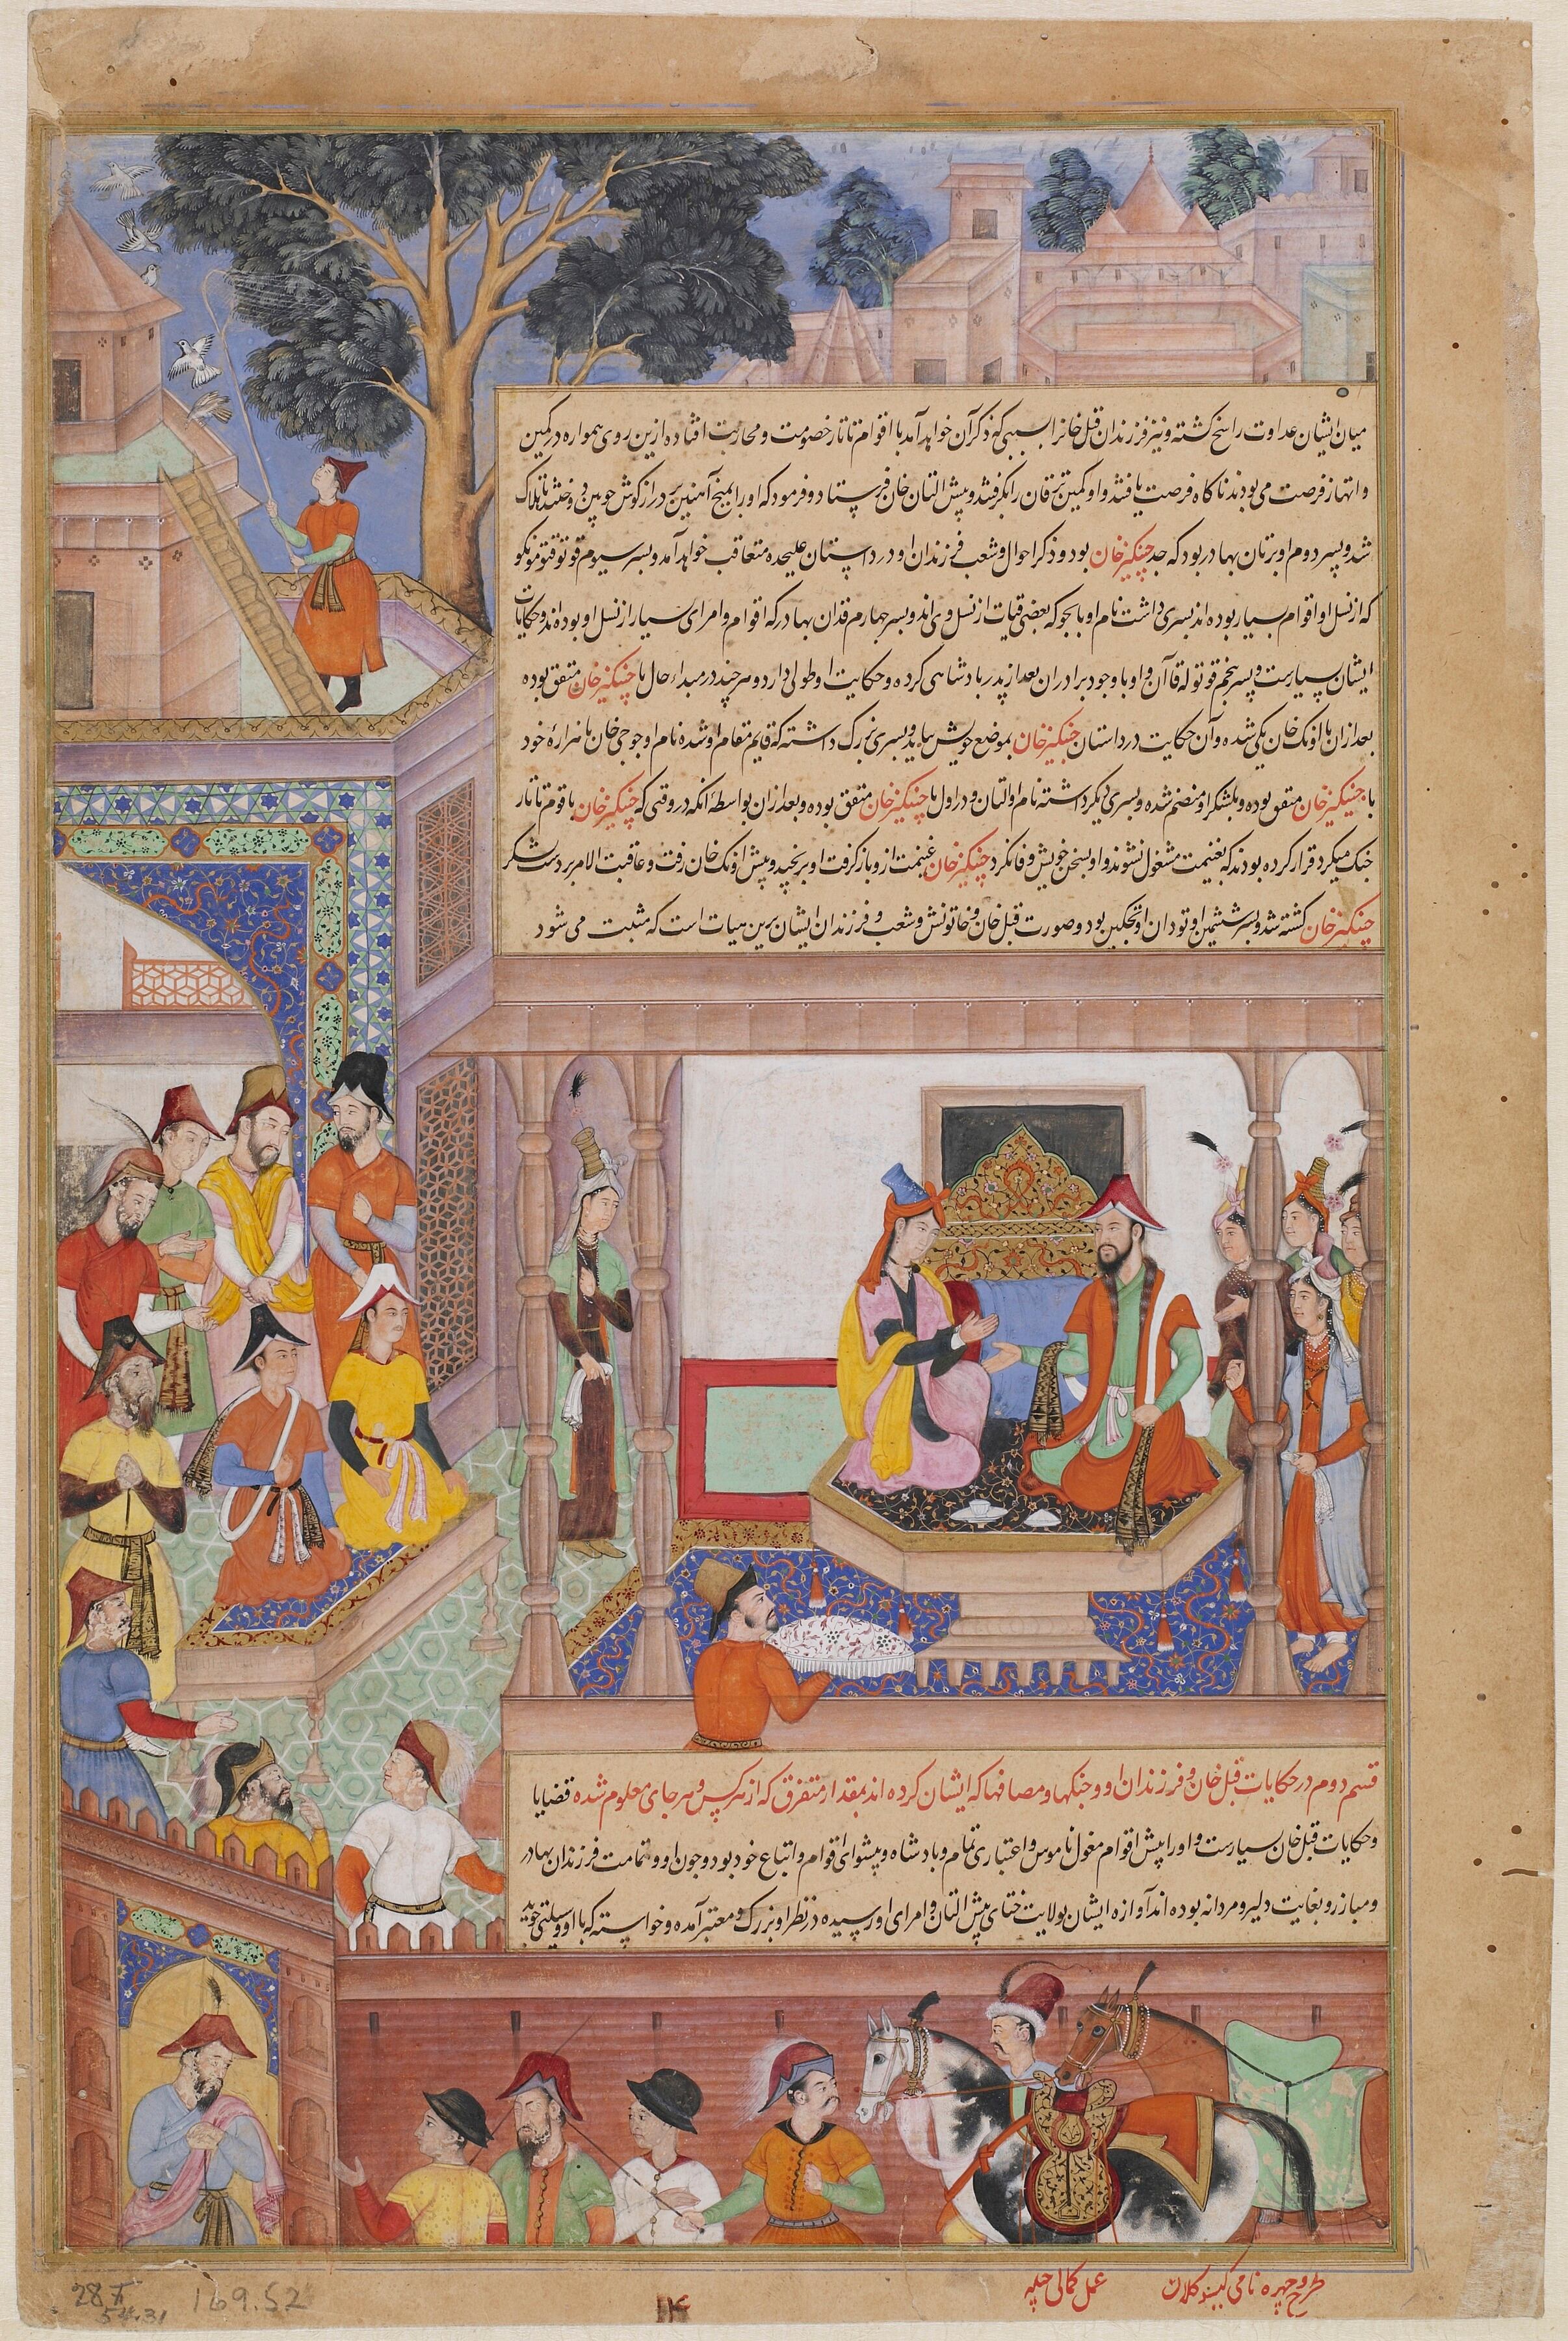 میان ایشان عداوت راسخ گشته و نیز فرزندان قبل خانرا بسببی که ذکر آن خواهد آمد با اقوام تاتار خصومت و محاربت افتاده ازین روی همواره در کمین
و انتهاز فرصت می بودند ناکاه فرصت یافتند و اوکین برقان را بگرفتند و پیش التان خان فرستاد و فرمود که او را بمیخ آهنین بر دراز گوش چوبین دوختند تا هلاک
شد و پسر دوم او برتان بهادر بود که جد چنگیز خان بود و ذکر احوال و شعب فرزندان او در داستان علیحده متعاقب خواهد آمد و پسر سیوم قوتوقتو مونکو
که از نسل او اقوام بسیار بوده اند پسری داشت نام او بعضی قیات از نسل وی اند و پسر چهارم قدان بهادر که اقوام و امرای بسیار از نسل او بوده اند و حکایات
ایشان بسیارست و پسر پنجم قوتوله قاآن و او با وجود برادران بعد از پدر پادشاهی کرده و حکایت او طولی دارد و هر چند در مبداء حال با چنگیز خان متفق بوده
بعد ازان با اونک خان یکی شده و آن حکایت در داستان چنگیز خان بموضع خویش بیاید و پسری بزرک داشته که قایم مقام او شده نام او جوجی خان با هزاره خود
با چنگیز خان متفق بوده و بلشکر او منضم شده و پسری دیگر داشته نام او التان و در اول با چنگیز خان متفق بوده و بعد ازان بواسطه آنکه در وقتی که چنگیز خان با قوم تاتار
جنک میکرد قرار کرده بودند که بغنیمت مشغول نشوند و او بسخن خویش وفا نکرد چنگیز خان غنیمت ازو باز گرفت او برنجید و پیش اونک خان رفت و عاقبت الامر بر دست لشکر
چنگیز خان کشته شد و پسر ششمین او تودان اوتچکین بود و صورت قبل خان و خاتونش و شعب و فرزندان ایشان برین هیات است که مثبت می شود
قسم دوم در حکایات قبل خان و فرزندان او و جنکها و مصافها که ایشان کرده اند بمقدار متفرق که از هر کس و هر جای معلوم شده قضایا
و حکایات قبل خان بسیارست و او را پیش اقوام مغول ناموس و اعتباری تمام و پادشاه و پیشوای اقوام و اتباع خود بود و چون او و تمامت فرزندان بهادر
و مبارز و بغایت دلیر و مردانه بوده اند آوازه ایشان بولایت ختای پیش التان و امرای او رسیده در نظر او بزرک و معتبر آمده و خواسته که با او وسیلتی جوید
طرح و چهره نامی کیسو کلان
عمل کمالی چیله
۱۴
28
54.31
169.52